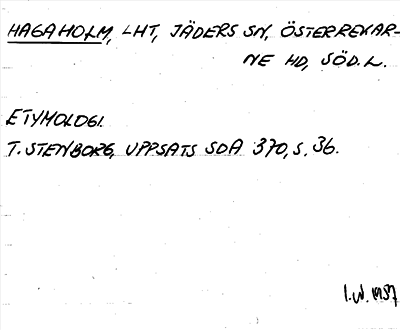 HAGAHOLM, LHT, JÄDERS SN, ÖSTERREKAR-
NE HD, SÖD. L.
ETYMOLOGI.
T. STENBORG, UPPSATS SDA 370, S. 36.
I.W. 1957